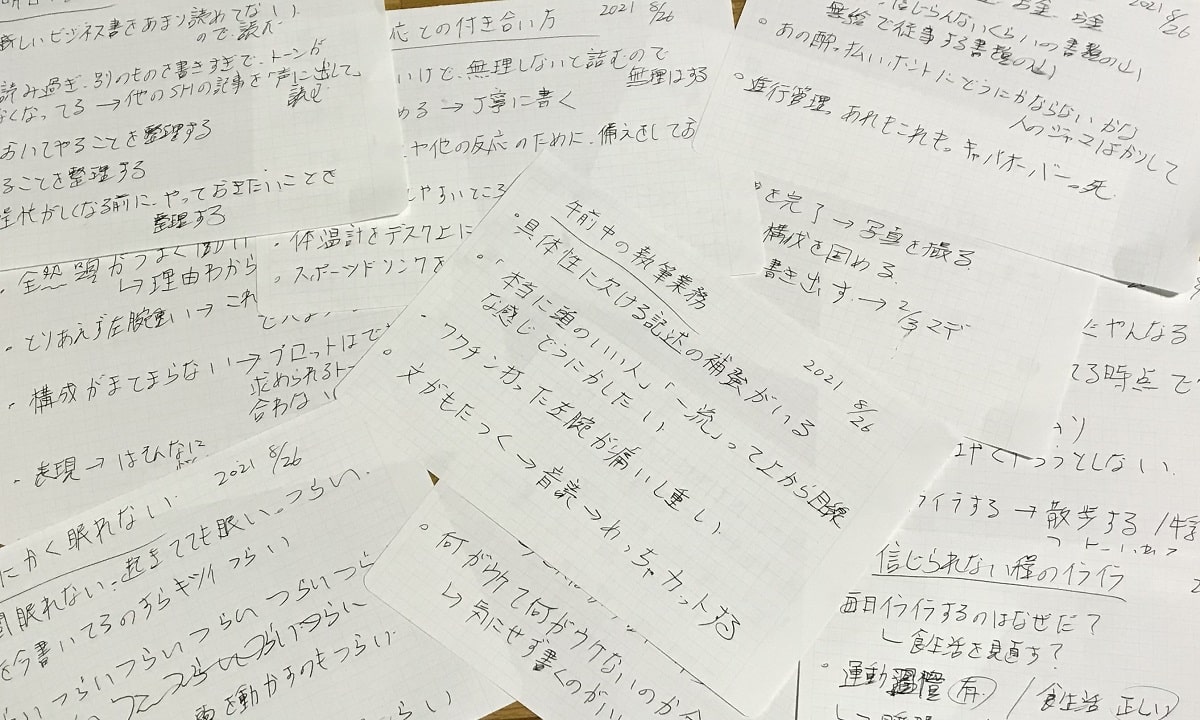 新しいビジネス書をあまり読めてない
ので、読む
読み過ぎ、別のものを書きすぎで、トーンが
なくなってる → 他のSHの記事を「声に出して
読む
おいてやることを整理する
ることを整理する
忙しくなる前に、やっておきたいことを
整理する
応との付き合い方
2021 8/26
いけど、無理しないと詰むので
無理はする
める → 丁寧に書く
や他の反応のために、備えをしてお
やすいところ
・体温計をデスク上に
・スポーツドリンクを
お金 お金
2021 8/26
・信じらんないくらいの書類の山
無給で従事する書類の山
あの酔っ払い、ホントにどうにかならないかな
人のジャマばかりして
・進行管理。あれもこれも。キャパオーバーっ死
を完了 → 写真を撮る
構成を固める
書き出す → 2/3マデ
・全然頭がつよく
↳ 理由わから
・とりあえず左腕重い → これ
・構成がまとまらない → プロットはで
求められるト
合わない
・表現 → はそんなに
午前中の執筆業務
2021 8/26
・具体性に欠ける記述の補強がいる
・「本当に頭のいい人」「一流」って上から目線
な感じどうにかしたい
・ワクチン打った左腕が痛いし重い
・文がもたつく → 音読 → めっちゃカットする
にかく眠れない
2021 8/26
眠れない。起きてても眠い。つらい。
を今書いてるのすらキツイ つらい
いつらいつらい つらいつらいつら
を動かすのもつらい
・何がウケて何がウケないのか
↳ 気にせず書くのがい
にやんなる
てる時点で
としない
イラする → 散歩する /
信じられない程のイライラ
毎日イライラするのはなぜだ?
↳ 食生活を見直す?
・運動習慣 有 / 食生活 正しい